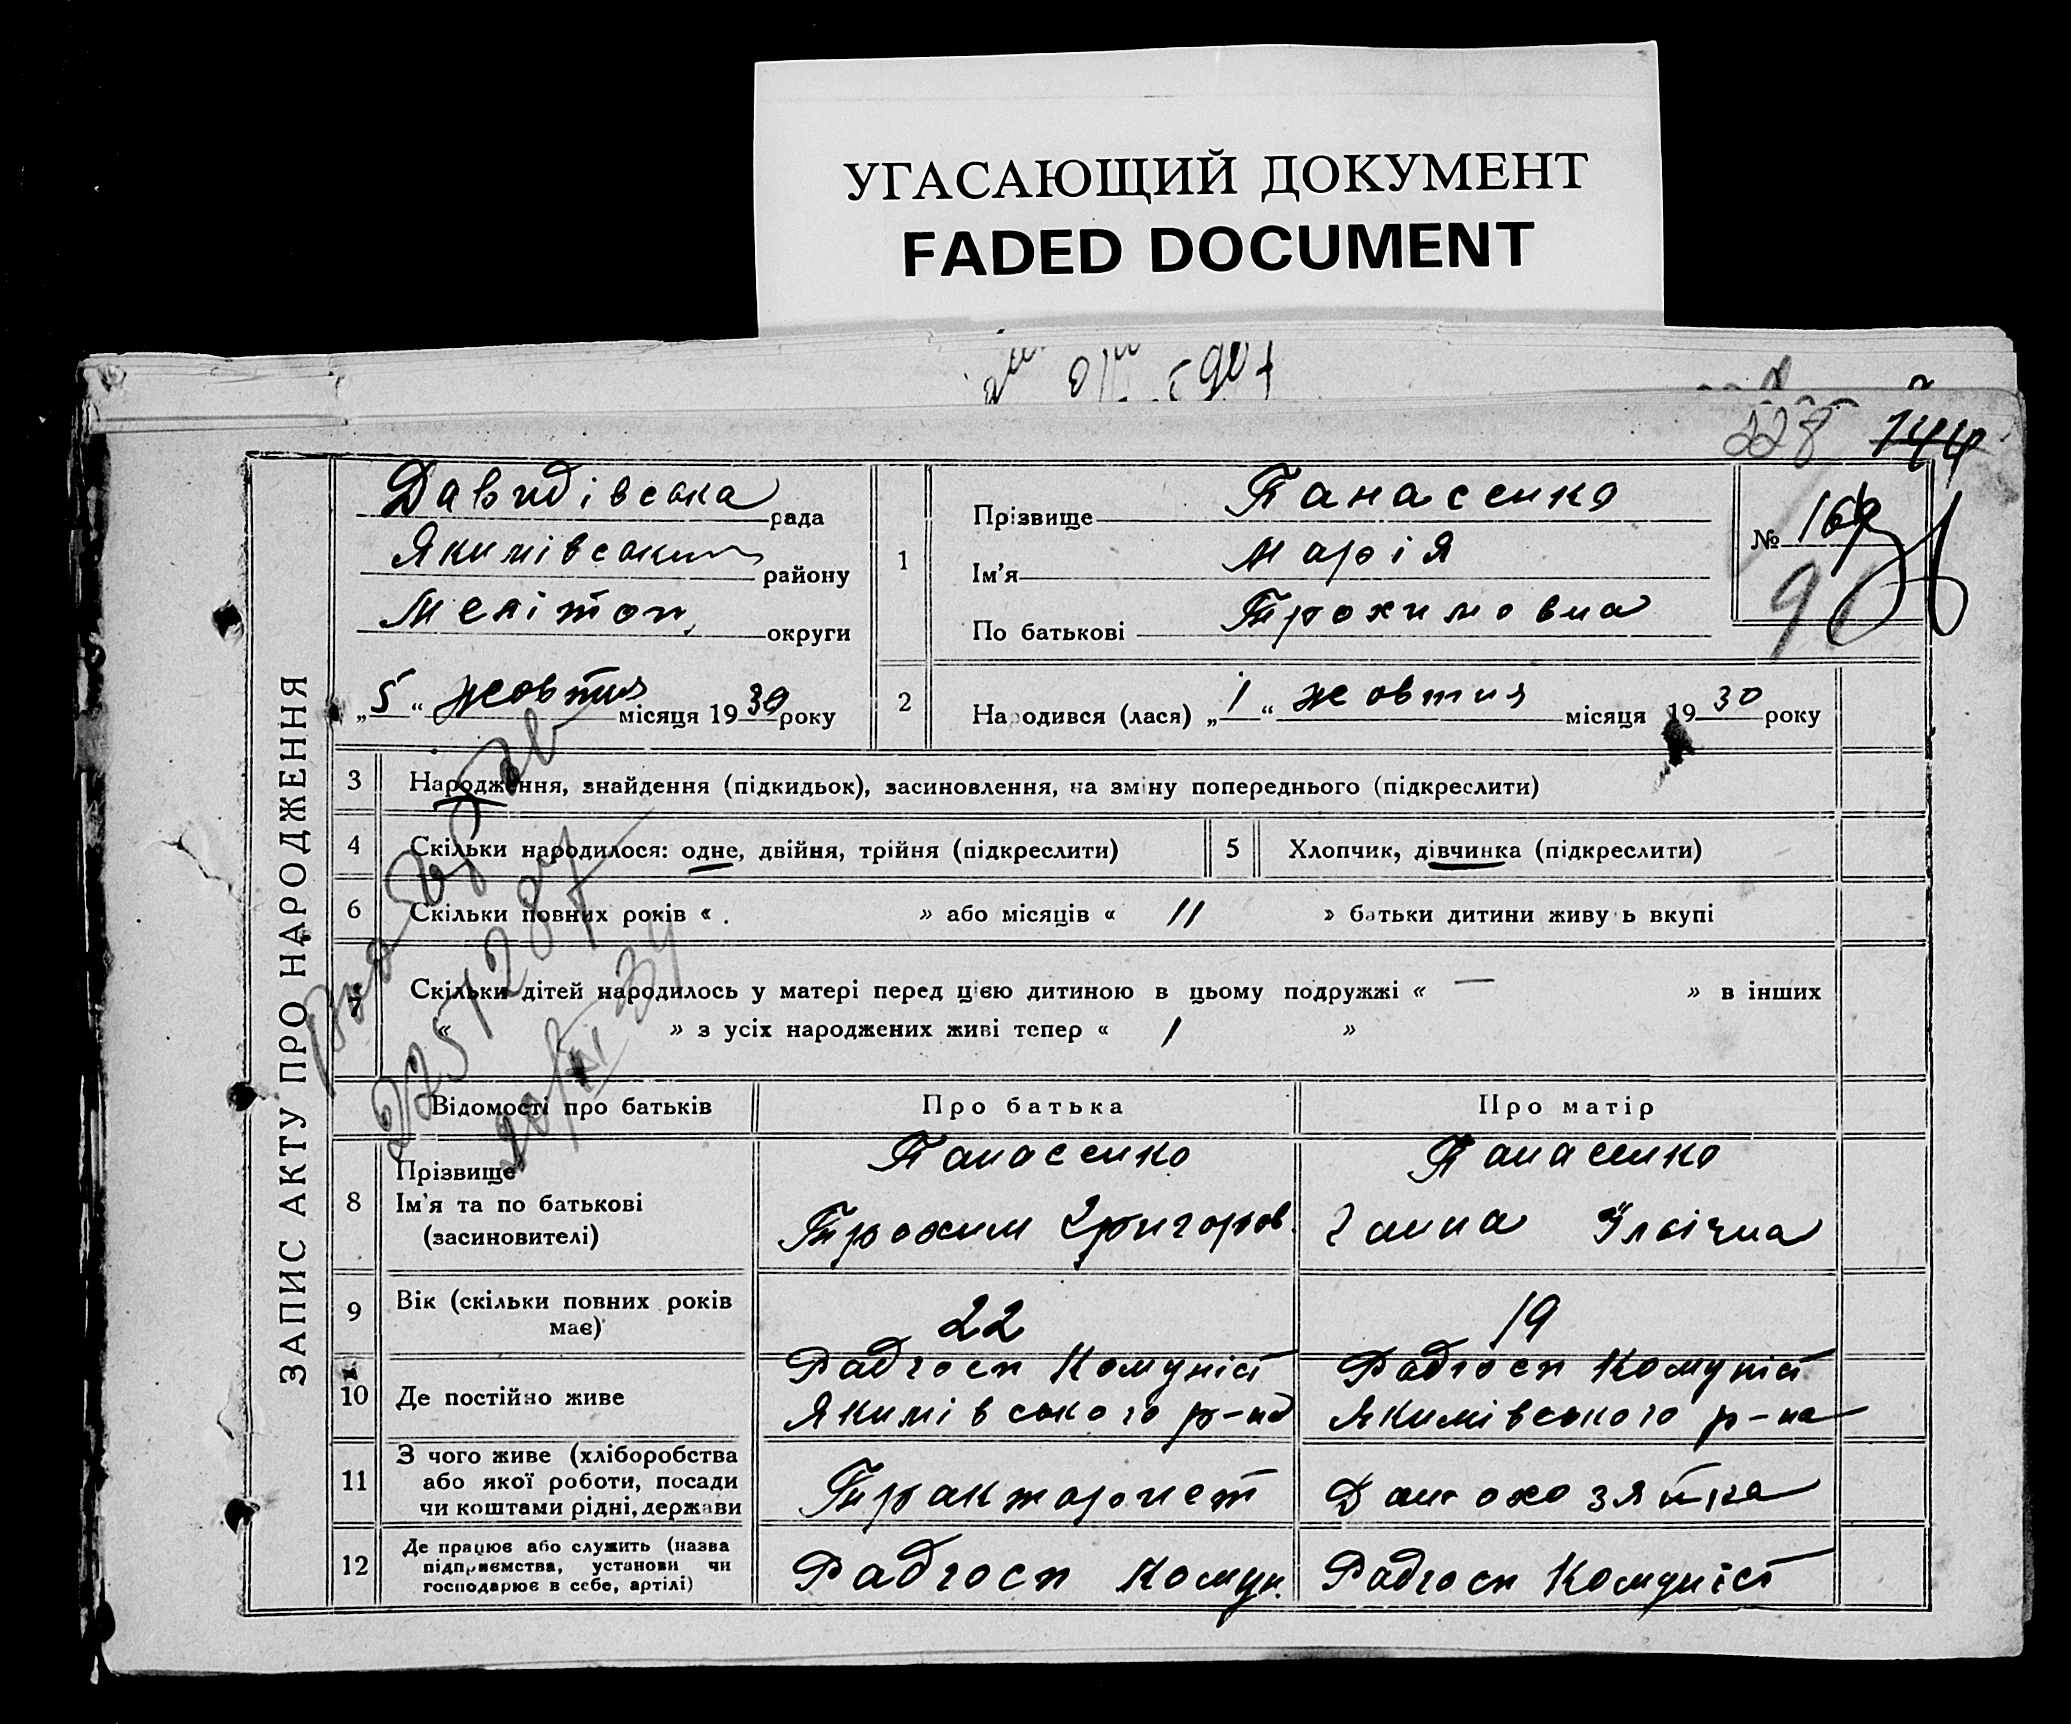 УГАСАЮЩИЙ ДОКУМЕНТ
FADED DOCUMENT
228 144
ЗАПИС АКТУ ПРО НАРОДЖЕННЯ
Давидівська рада
Якимівськ району
Мелітоп. округи
„5“ жовтня місяця 1930 року
1
Прізвище Панасенко
Ім'я Марія
По батькові Трохимовна
№ 169
90
2
Народився (лася) „1“ жовтня місяця 1930 року
3 Народження, знайдення (підкидьок), засиновлення, на зміну попереднього (підкреслити)
4 Скільки народилося: одне, двійня, трійня (підкреслити)
5 Хлопчик, дівчинка (підкреслити)
6 Скільки повних років « » або місяців « 11 » батьки дитини живуть вкупі
7 Скільки дітей народилось у матері перед цією дитиною в цьому подружжі « — » в інших
« » з усіх народжених живі тепер « 1 »
Відомості про батьків
Про батька
Про матір
8 Прізвище
Ім'я та по батькові
(засиновителі)
Панасенко
Трохим Григоров.
Панасенко
Ганна Ільічна
9 Вік (скільки повних років
має)
22
19
10 Де постійно живе
Радгосп Комуніст
Якимівського р-на
Радгосп Комуніст
Якимівського р-на
11 З чого живе (хліборобства
або якої роботи, посади
чи коштами рідні, держави
Тракторист
Домохозяйка
12 Де працює або служить (назва
підприємства, установи чи
господарює в себе, артілі)
Радгосп Комун.
Радгосп Комуніст